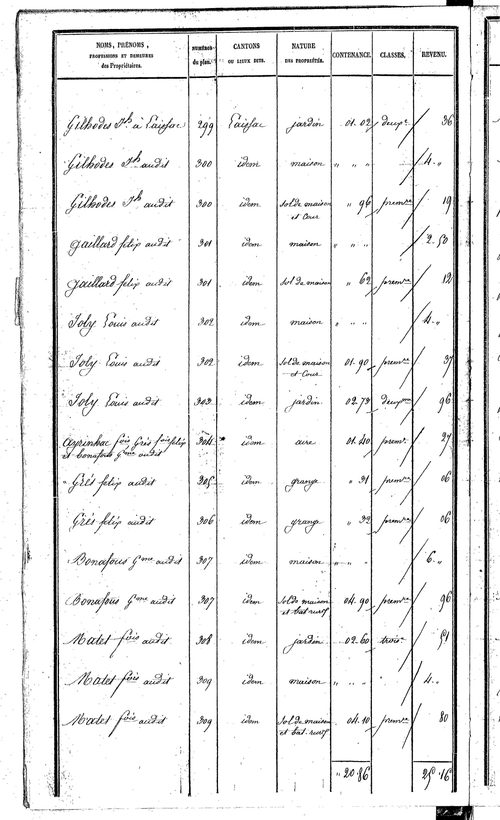 NOMS, PRÉNOMS, PROFESSIONS ET DEMEURES des Propriétaires. NUMÉROS du plan. CANTONS OU LIEUX DITS. NATURE DES PROPRIÉTÉS. CONTENANCE. CLASSES. REVENU.
Gilhodes Jh à Laissac 299 Laissac jardin 01.02 deuxe 36
Gilhodes Jh audit 300 idem maison " " " 4 "
Gilhodes Jh audit 300 idem sol de maison et Cour " 96 premre 19
Gaillard felip audit 301 idem maison " " " 2.50
Gaillard felip audit 301 idem sol de maison " 62 premre 12
Joly Louis audit 302 idem maison " " " 4 "
Joly Louis audit 302 idem sol de maison et Cour 01.90 premre 37
Joly Louis audit 303 idem jardin 02.73 96
Ayrinhac fois Grés fois felip
et bonafous Gme audit 304 idem aire 01.40 premre 27
" Grés felip audit 305 idem grange " 31 premre 06
Grés felip audit 306 idem grange " 32 premre 06
Bonafous Gme audit 307 idem maison " " " 6 "
Bonafous Gme audit 307 idem sol de maison et bat. rurx 04.90 premre 96
Matet fois audit 308 idem jardin 02.60 trois 51
Matet fois audit 309 idem maison " " " 4 "
Matet fois audit 309 idem sol de maison et bat. rurx 04.10 premre 80
" 20 86 25.16